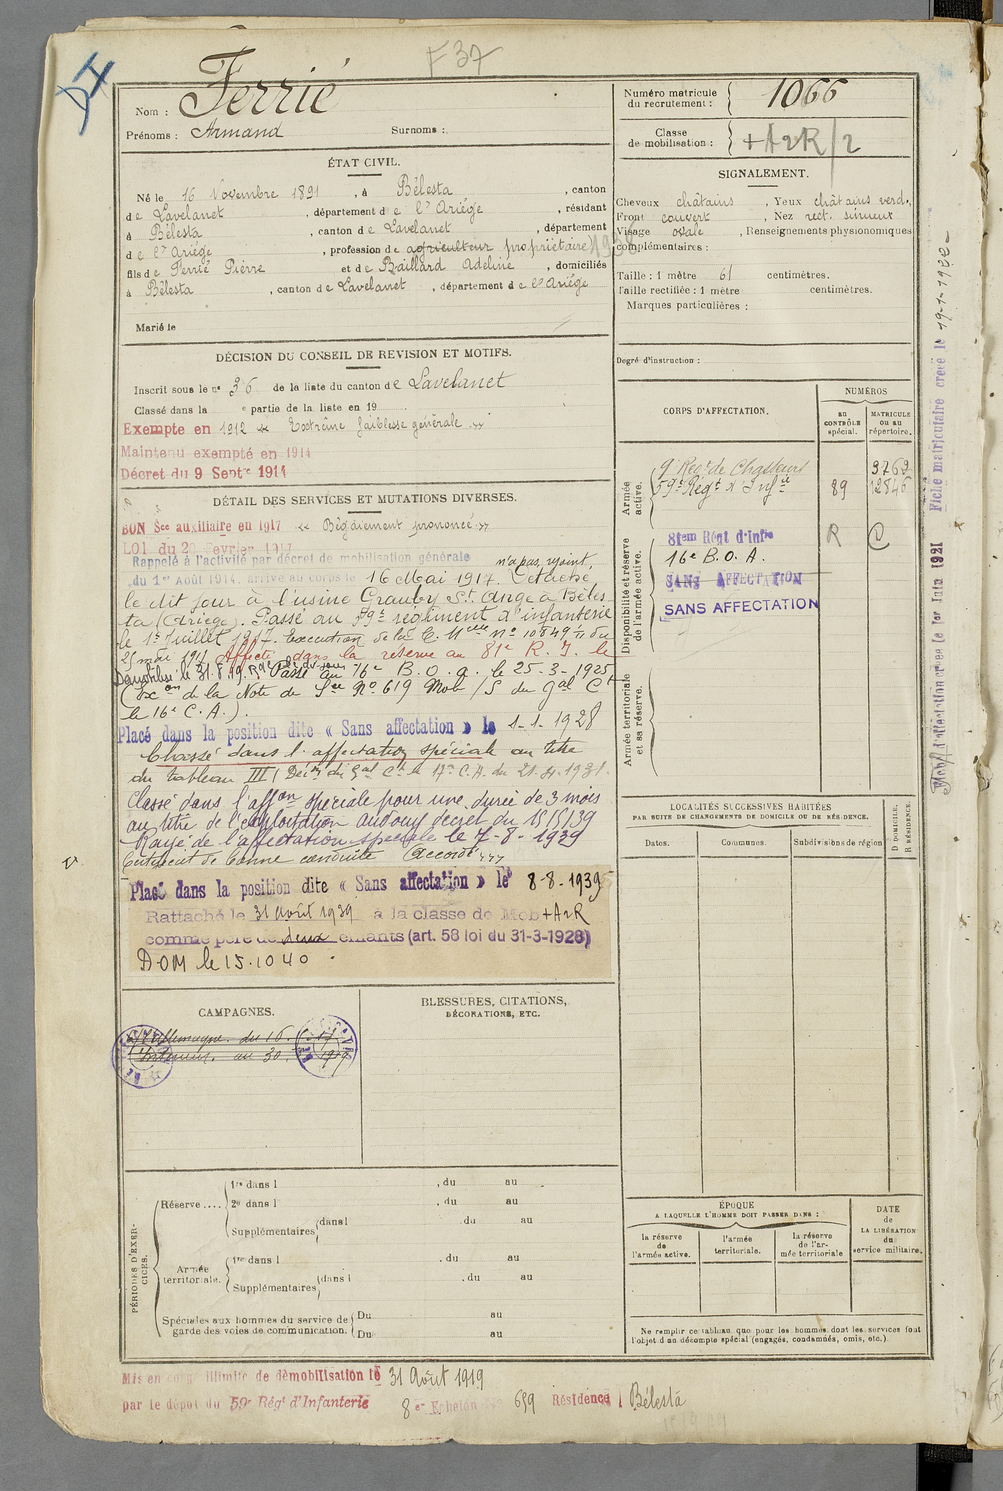 F 37
Nom : Ferrié
Prénoms : Armand Surnoms :
Numéro matricule du recrutement : 1066
Classe de mobilisation : +A2R/2
ÉTAT CIVIL.
Né le 16 Novembre 1891, à Bélesta, canton
de Lavelanet, département de l'Ariège, résidant
à Bélesta, canton de Lavelanet, département
de l'Ariège, profession de agriculteur propriétaire
fils de Ferrié Pierre et de Baillard Adeline, domiciliés
à Bélesta, canton de Lavelanet, département de l'Ariège
Marié le
SIGNALEMENT.
Cheveux châtains, Yeux châtains verd.,
Front couvert, Nez rect. sinueux
Visage ovale, Renseignements physionomiques
complémentaires :
Taille : 1 mètre 61 centimètres.
Taille rectifiée : 1 mètre centimètres.
Marques particulières :
Degré d'instruction :
DÉCISION DU CONSEIL DE REVISION ET MOTIFS.
Inscrit sous le n° 36 de la liste du canton de Lavelanet
Classé dans la e partie de la liste en 19
Exempté en 1912 « Extrême faiblesse générale »
Maintenu exempté en 1914
Décret du 9 Septre 1914
DÉTAIL DES SERVICES ET MUTATIONS DIVERSES.
BON Sce auxiliaire en 1917 « Bégaiement prononcé »
LOI du 20 Fevrier 1917
Rappelé à l'activité par décret de mobilisation générale
du 1er Août 1914. arrivé au corps le 16 Mai 1917. Détaché
n'a pas rejoint,
le dit jour à l'usine St. Ange à Béles
ta (Ariège). Passé au 59e régiment d'infanterie
le 1er Juillet 1917. Execution de la C. Mlle n° 10849 du
Affecté dans la réserve au 81e R. I. le
Passé au 16e B. O. A. le 25-3-1925
(Exon de la Note de Sce N° 619 Mob/S du Gal Ct
le 16e C.A.).
Placé dans la position dite « Sans affectation » le 1-1-1928
Classé dans l'affectation spéciale au titre
du tableau III (Décon du Gal Ct le 17e C.A. du 21.4.1931.
Classé dans l'affon spéciale pour une durée de 3 mois
au titre de l'exploitation Audouy decret du 15/5/39
Rayé de l'affectation spéciale le 7-8-1939
Certificat de bonne conduite Accordé
Placé dans la position dite « Sans affectation » le 8-8-1939
Rattaché le 31 Août 1939 à la classe de Mob +A2R
comme père de deux enfants (art. 58 loi du 31-3-1928)
DOM le 15.10 40
CORPS D'AFFECTATION.
NUMÉROS
au CONTRÔLE spécial.
MATRICULE ou au répertoire.
Armée active.
9e Regt de Chasseurs 3769
59e Regt d'Infie 89 12846
Disponibilité et réserve de l'armée active.
81em Régt d'Infie R C
16e B.O.A.
SANS AFFECTATION
SANS AFFECTATION
Armée territoriale et sa réserve.
LOCALITÉS SUCCESSIVES HABITÉES
PAR SUITE DE CHANGEMENTS DE DOMICILE OU DE RÉSIDENCE.
Dates. Communes. Subdivisions de région
D DOMICILE.
R RÉSIDENCE.
CAMPAGNES.
c/ l'Allemagne du 16
Intérieur au 30
BLESSURES, CITATIONS,
DÉCORATIONS, ETC.
PÉRIODES D'EXERCICES.
Réserve....
1re dans l , du au
2e dans l , du au
Supplémentaires dans l , du au
Armée territoriale.
1re dans l , du au
Supplémentaires dans l , du au
Spéciales aux hommes du service de garde des voies de communication.
Du au
Du au
ÉPOQUE
A LAQUELLE L'HOMME DOIT PASSER DANS :
la réserve de l'armée active.
l'armée territoriale.
la réserve de l'armée territoriale
DATE DE LA LIBÉRATION du service militaire.
Ne remplir ce tableau que pour les hommes dont les services font
l'objet d'un décompte spécial (engagés, condamnés, omis, etc.).
Mis en congé illimité de démobilisation le 31 Août 1919
par le dépôt du 59e Régt d'Infanterie 8e Echelon N° 659 Résidence Bélesta
Fiche matriculaire creée le 19-1-1922